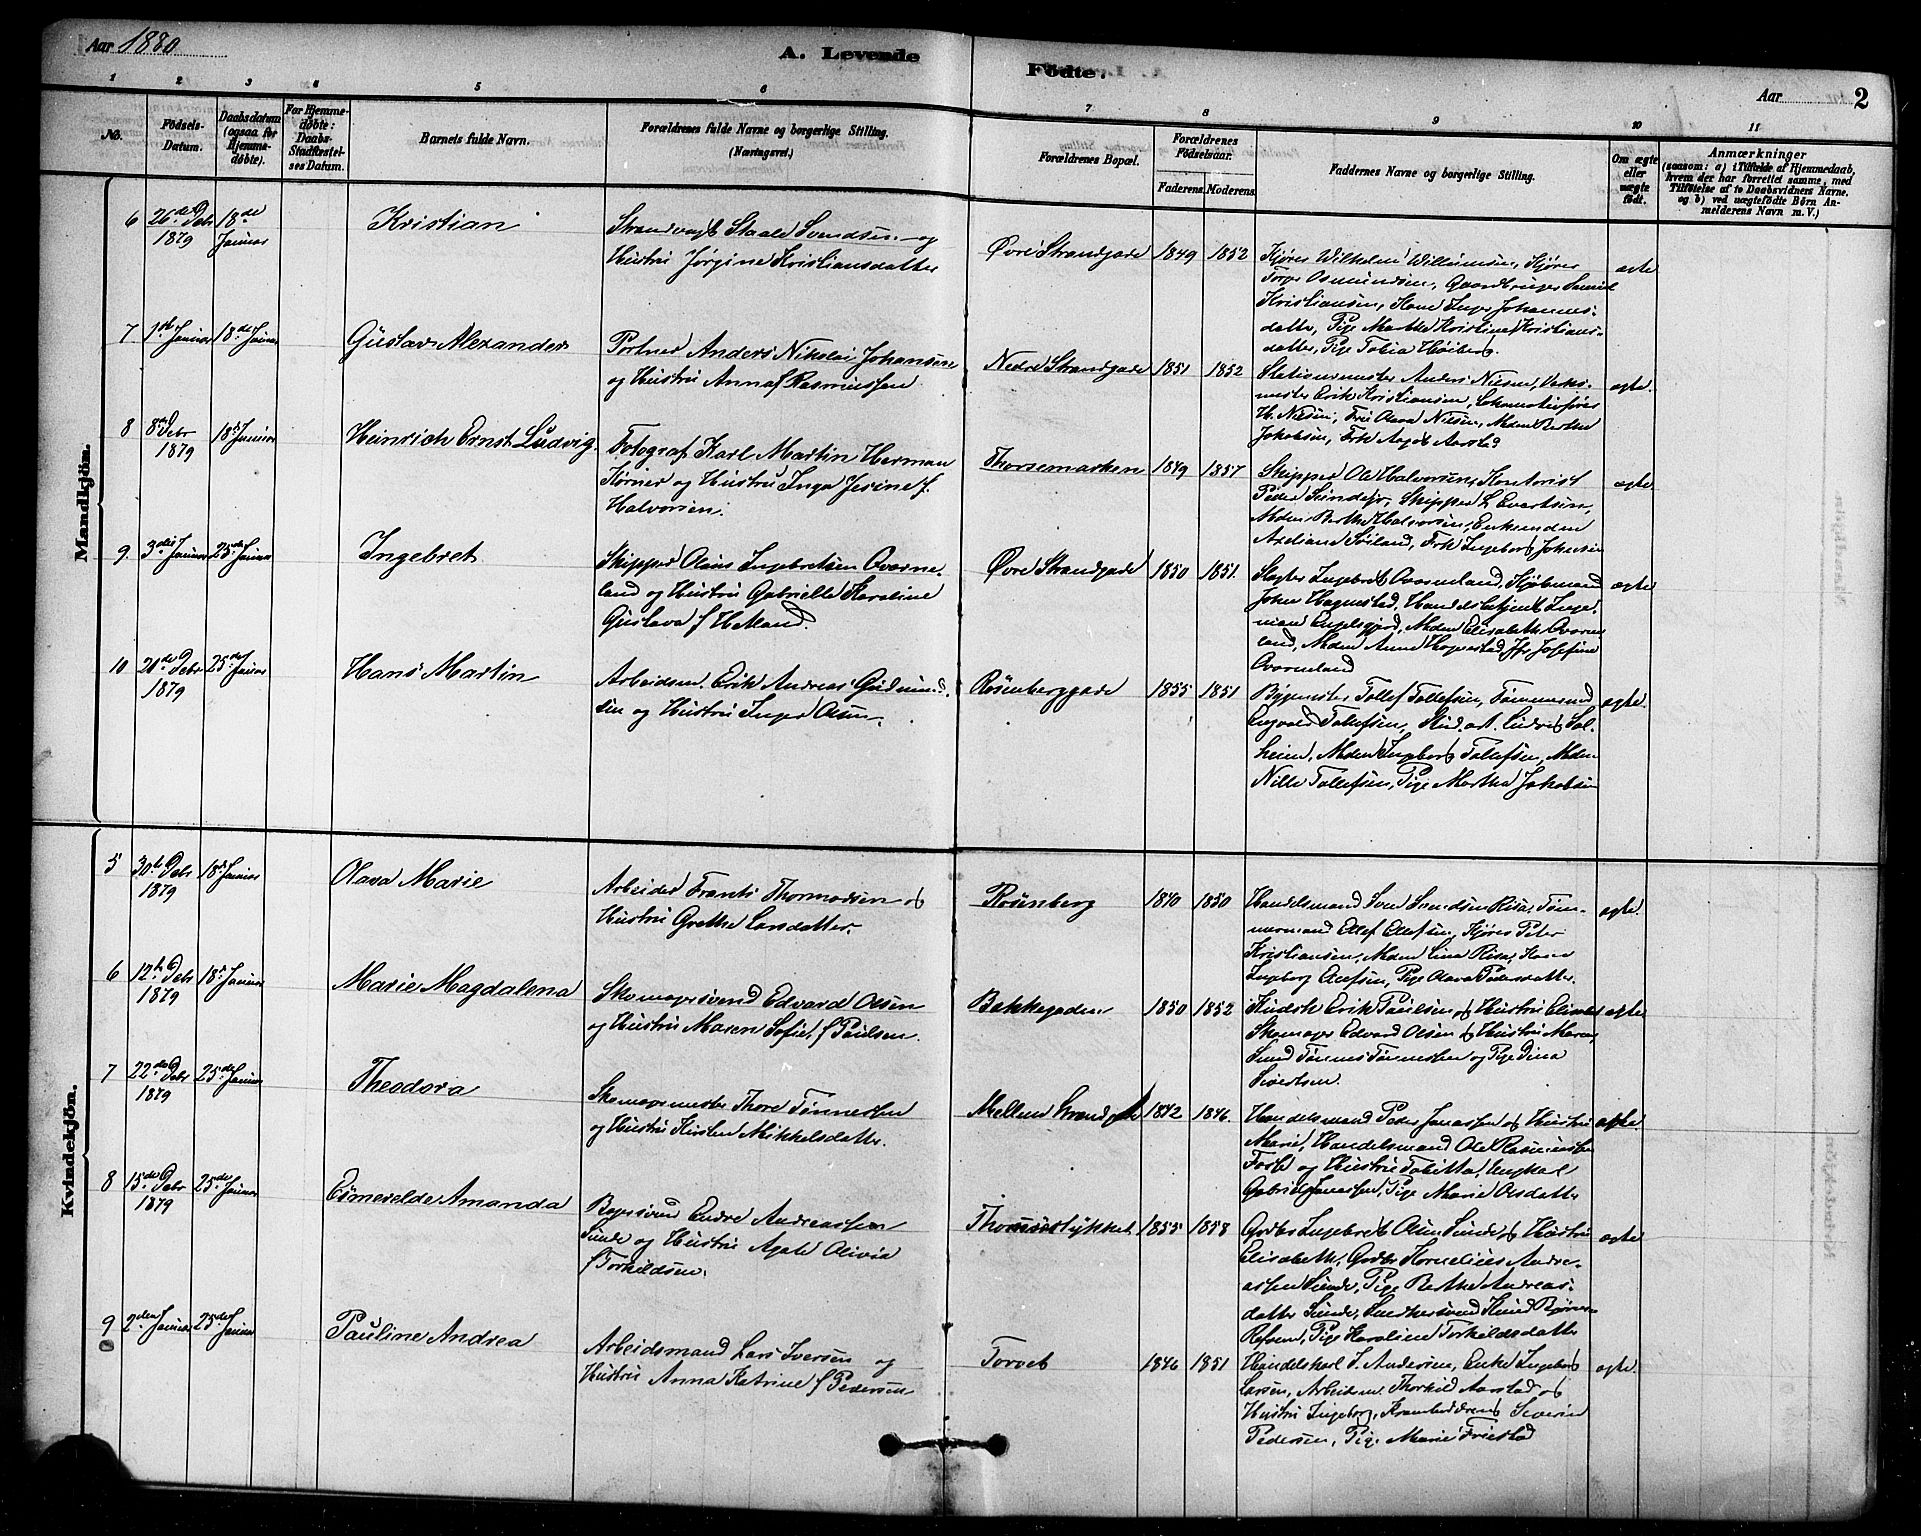 Aar 1880
A. Levende
Födte.
Aar
2
1 2 3 4 5 6 7 8 9 10 11
No.
Födsels-
Datum.
Daabsdatum
(ogsaa for
Hjemme-
døbte).
For Hjemme-
døbte:
Daabs-
Stadfæstel-
ses Datum.
Barnets fulde Navn.
Forældrenes fulde Navne og borgerlige Stilling.
(Næringsvei.)
Forældrenes Bopæl.
Forældrenes
Födselsaar.
Faderens. Moderens.
Faddernes Navne og borgerlige Stilling.
Om ægte
eller
uægte
født.
Anmærkninger
(saasom: a) i Tilfælde af Hjemmedaab,
hvem der har forrettet samme, med
Tilføielse af to Daabsvidners Navne.
og b) ved uægtefødte Börn An-
melderens Navn m. V.)
Mandkjön.
6 26de Debr 18de
1879 Januar
Kristian
Strandvagt Staale Svendsen og
Hustru Jørgine Kristiansdatter
Øvre Strandgade 1849 1852
Kjører Wilhelm Willumsen, Kjører
Torger Osmundsen, Gaardbruger
Kristiansen, Kone Inger Johannes-
datter, Pige Marthe Kristine Kristians-
datter, Pige Tobia Høiberg.
ægte
7 1ste Januar 18de Januar
Gustav Alexander
Portner Anders Nikolai Johansen
og Hustru Anna f Rasmussen.
Nedre Strandgade 1851 1852
Stationsmester Anders Nielsen, Værks-
mester Erik Kristiansen, Lokomotivfører
H. Nielsen, Fru Olava Nielsen, Mden Berthe
Jakobsen, Frk Aagot Aarstad
ægte.
8 8de Debr 18de Januar
1879
Heinrich Ernst Ludvig.
Fotograf Karl Martin Herman
Körner og Hustru Inga Jesine f.
Halvorsen.
Thorsemarken 1849 1857
Skipper Ole Halvorsen, Kontorist
Peder Sundesjø, Skipper L Evertsen,
Mden Berthe Halvorsen, Enkemden
Axeliane Soiland, Frk Ingeborg Johnsen
ægte
9. 3die Januar 25de Januar
Ingebret
Skipper Olaus Ingebretsen Ovorne-
land og Hustru Gabrielle Karoline
Gustava f Helland.
Øvre Strandgade 1850 1851.
Slagter Ingebret Ovorneland, Kjøbmand
John Hognestad, Handelsbetjent Inge-
Mden Elisabeth Ovorne-
land, Mden Anne Hognestad, Jfr Josefine
Ovorneland
ægte
10 20de Debr 25de Januar
1879
Hans Martin
Arbeidsm. Erik Andreas Gudmund-
sen og Hustru Inger Olsen.
Rosenberggade 1855 1851
Bygmester Tollef Tollefsen, Tømmermd
Engvald Tollefsen, Stud. art. Ludvig Sol-
heim, Mden Ingeborg Tollefsen, Mden
Nille Tollefsen, Pige Martha Jakobsen
ægte.
Kvindekjön.
5 30te Debr 18de Januar
1879
Olava Marie
Arbeider Frants Thormodsen og
Hustru Grethe Larsdatter.
Rosenberg 1840 1850
Handelsmand Sven Svendsen Risa, Tøm-
mermand Ollef Ollefsen, Kjører Peter
Kristiansen, Mden Lina Risa, Kone
Ingeborg Ollefsen, Pige Olava Pedersdatter.
ægte.
6 12te Debr 18de Januar
1879
Marie Magdalena
Skomagersvend Edvard Olsen
og Hustru Maren Sofie, f Paulsen.
Bakkegaden 1850 1852
Kudsk Erik Paulsen og Hustru Elisabet
Skomager Edvard Olsen og Hustru Maren,
Svend Tønnes Tønnessen og Pige Dina
Sivertsen.
ægte
7 22de Debr 25de Januar
1879
Theodora
Skomagermester Thore Tønnessen
og Hustru Kirsten Mikkelsdatter.
Mellem Strandgade 1842 1846.
Handelsmand Peder Jonassen og Hustru
Marie, Handelsmand Ole Rasmussen
Foss og Hustru Tobitta, Ungkarl
Gabriel Jonassen, Pige Marie Olsdatter
ægte.
8 15de Debr 25de Januar
1879
Esmerelde Amanda
Bagersvend Endre Andreassen
Sunde og Hustru Agate Olivia
f Torkildsen.
Thomasstykket 1855 1858
Gvdbr Ingebret Olsen Sunde og Hustru
Elisabeth, Gvdbr Kornelius Andre-
assen Sunde, Pige Berthe Andreas-
datter Sunde, Snedkersvend Knud Bjørnsen
Refsum, Pige Karoline Torkildsdatter
ægte
9 2den Januar 25de Januar
Pauline Andrea
Arbeidsmand Lars Iversen og
Hustru Anna Katrine f Pedersen
Torvet 1846 1851
Handelskarl J. Andersen, Enke Ingeborg
Larsen, Arbeidsm. Thorkild Aarstad og
Hustru Ingeborg, Severin
Pedersen, Pige Marie Friestad
ægte.